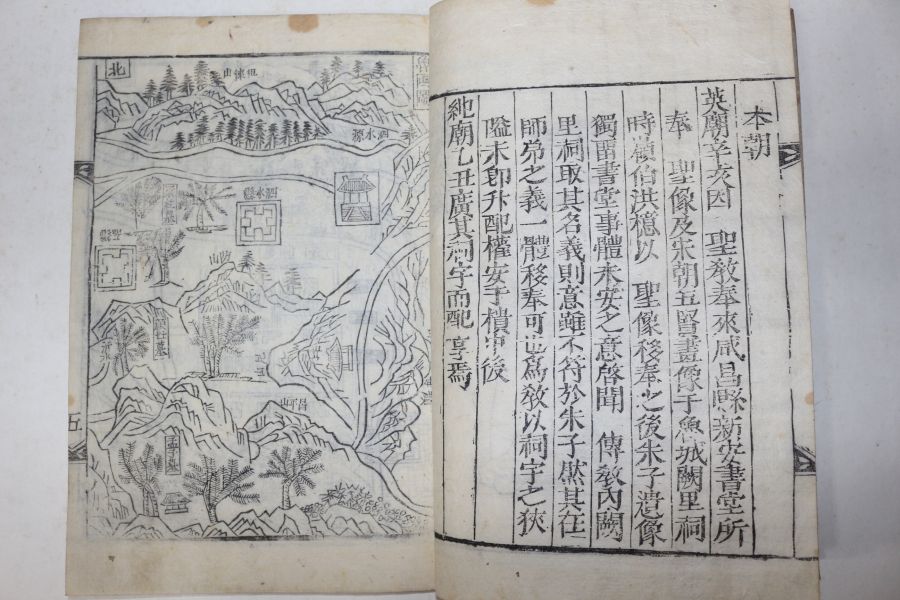 本朝
英廟辛亥因 聖敎奉來咸昌縣新安書堂所
奉 聖像及宋朝五賢畫像于魯城闕里祠
時嶺伯洪檍以 聖像移奉之後朱子遺像
獨留書堂事體未安之意啓聞 傳敎內闕
里祠取其名義則意雖不符於朱子然其在
師弟之義一體移奉可也爲敎以祠宇之狹
隘未卽升配權安于櫝中後
純廟乙丑廣其祠宇而配享焉
北
徂徠山
泗水縣
泗水縣
昌平山
五